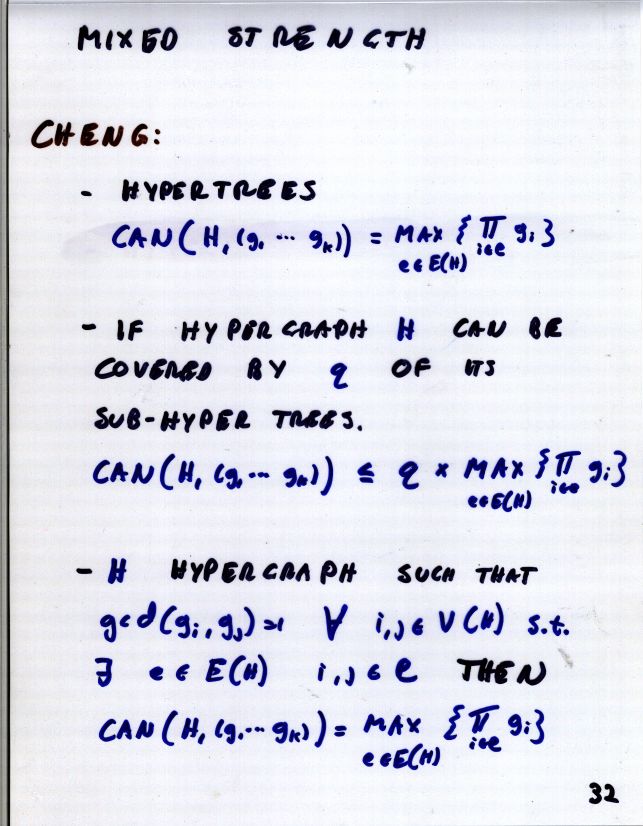 MIXED STRENGTH
CHENG:
- HYPERTREES
CAN(H, (g₁ ... gₖ)) = MAX { ∏ gᵢ }
e∈E(H) i∈e
- IF HYPERGRAPH H CAN BE
COVERED BY q OF ITS
SUB-HYPER TREES.
CAN(H, (g₁ ... gₖ)) ≤ q × MAX { ∏ gᵢ }
e∈E(H) i∈e
- H HYPERGRAPH SUCH THAT
gcd(gᵢ, gⱼ) = 1 ∀ i,j ∈ V(H) s.t.
∃ e ∈ E(H) i,j ∈ e THEN
CAN(H, (g₁ ... gₖ)) = MAX { ∏ gᵢ }
e∈E(H) i∈e
32